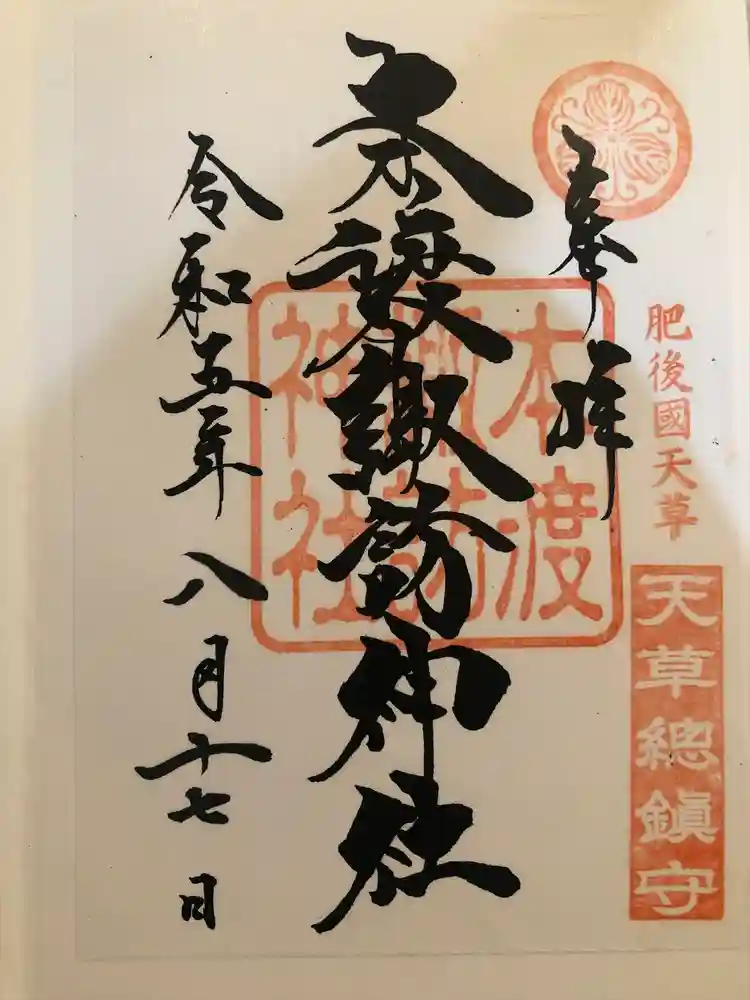 奉拝
肥後國天草
天草總鎮守
本渡諏訪神社
本渡諏訪神社
令和五年八月十七日